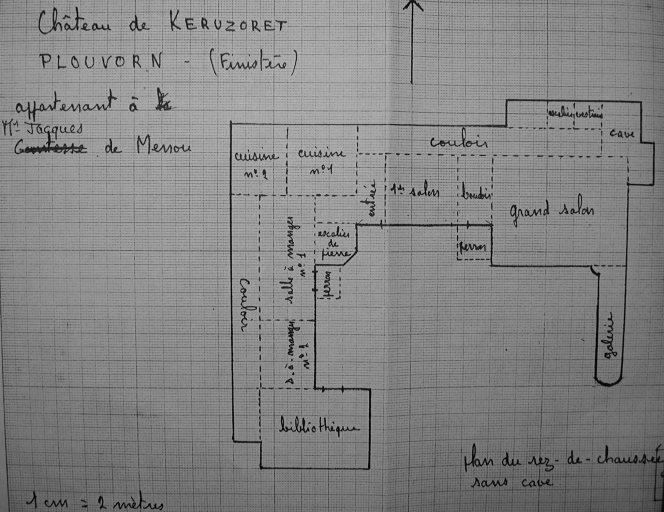 Château de KERUZORET
PLOUVORN - (Finistère)
appartenant à
Mr Jacques
Comtesse de Menou
couloir
cave
cuisine
n° 2
cuisine
n° 1
entrée
1er salon
boudoir
grand salon
perron
escalier
de
pierre
perron
salle à manger
n° 1
couloir
s.-à-manger
n° 2
galerie
bibliothèque
plan du rez-de-chaussée
sans cave
1 cm = 2 mètres